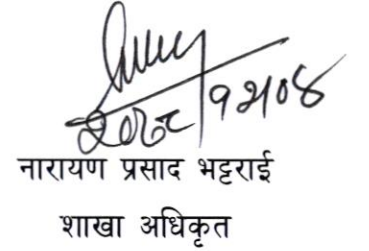 २०७८/१२/०४
नारायण प्रसाद भट्टराई
शाखा अधिकृत